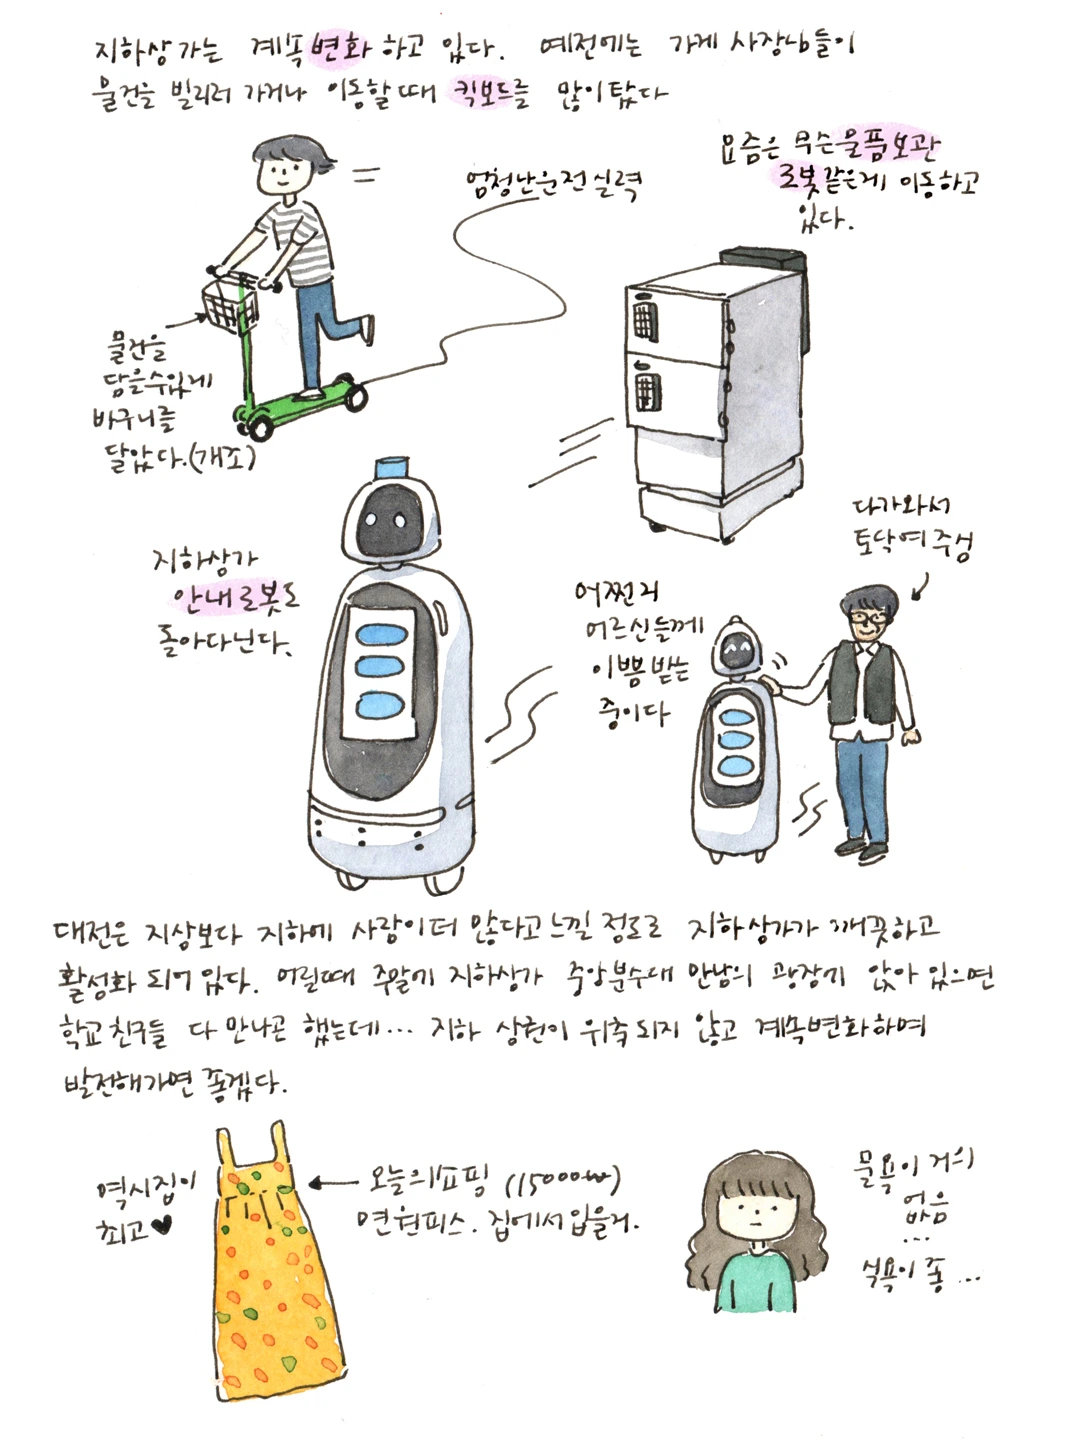 지하상가는 계속 변화 하고 있다. 예전에는 가게 사장님들이
물건을 빌리러 가거나 이동할때 킥보드를 많이탔다
요즘은 무슨물품보관
로봇같은게 이동하고
있다.
엄청난운전실력
물건을
담을수있게
바구니를
달았다.(개조)
지하상가
안내로봇도
돌아다닌다.
다가와서
토닥여주심
어쩐지
어르신들께
이쁨받는
중이다
대전은 지상보다 지하에 사람이더 많다고느낄 정도로 지하상가가 깨끗하고
활성화 되어 있다. 어릴때 주말에 지하상가 중앙분수대 만남의 광장에 앉아 있으면
학교친구들 다 만나곤 했는데... 지하 상권이 위축되지 않고 계속변화하며
발전해가면 좋겠다.
역시집이
최고♥
오늘의쇼핑 (15000w)
면원피스. 집에서입을거.
물욕이 거의
없음
...
식욕이 좀 ...